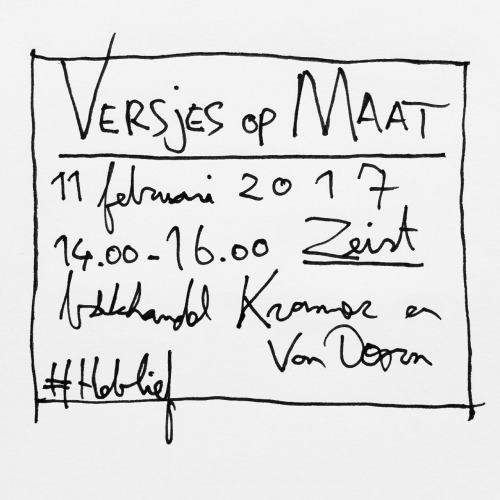 VERSJES OP MAAT
11 februari 2017
14.00-16.00 Zeist
boekhandel Kramer en
Van Doorn
#Heblief